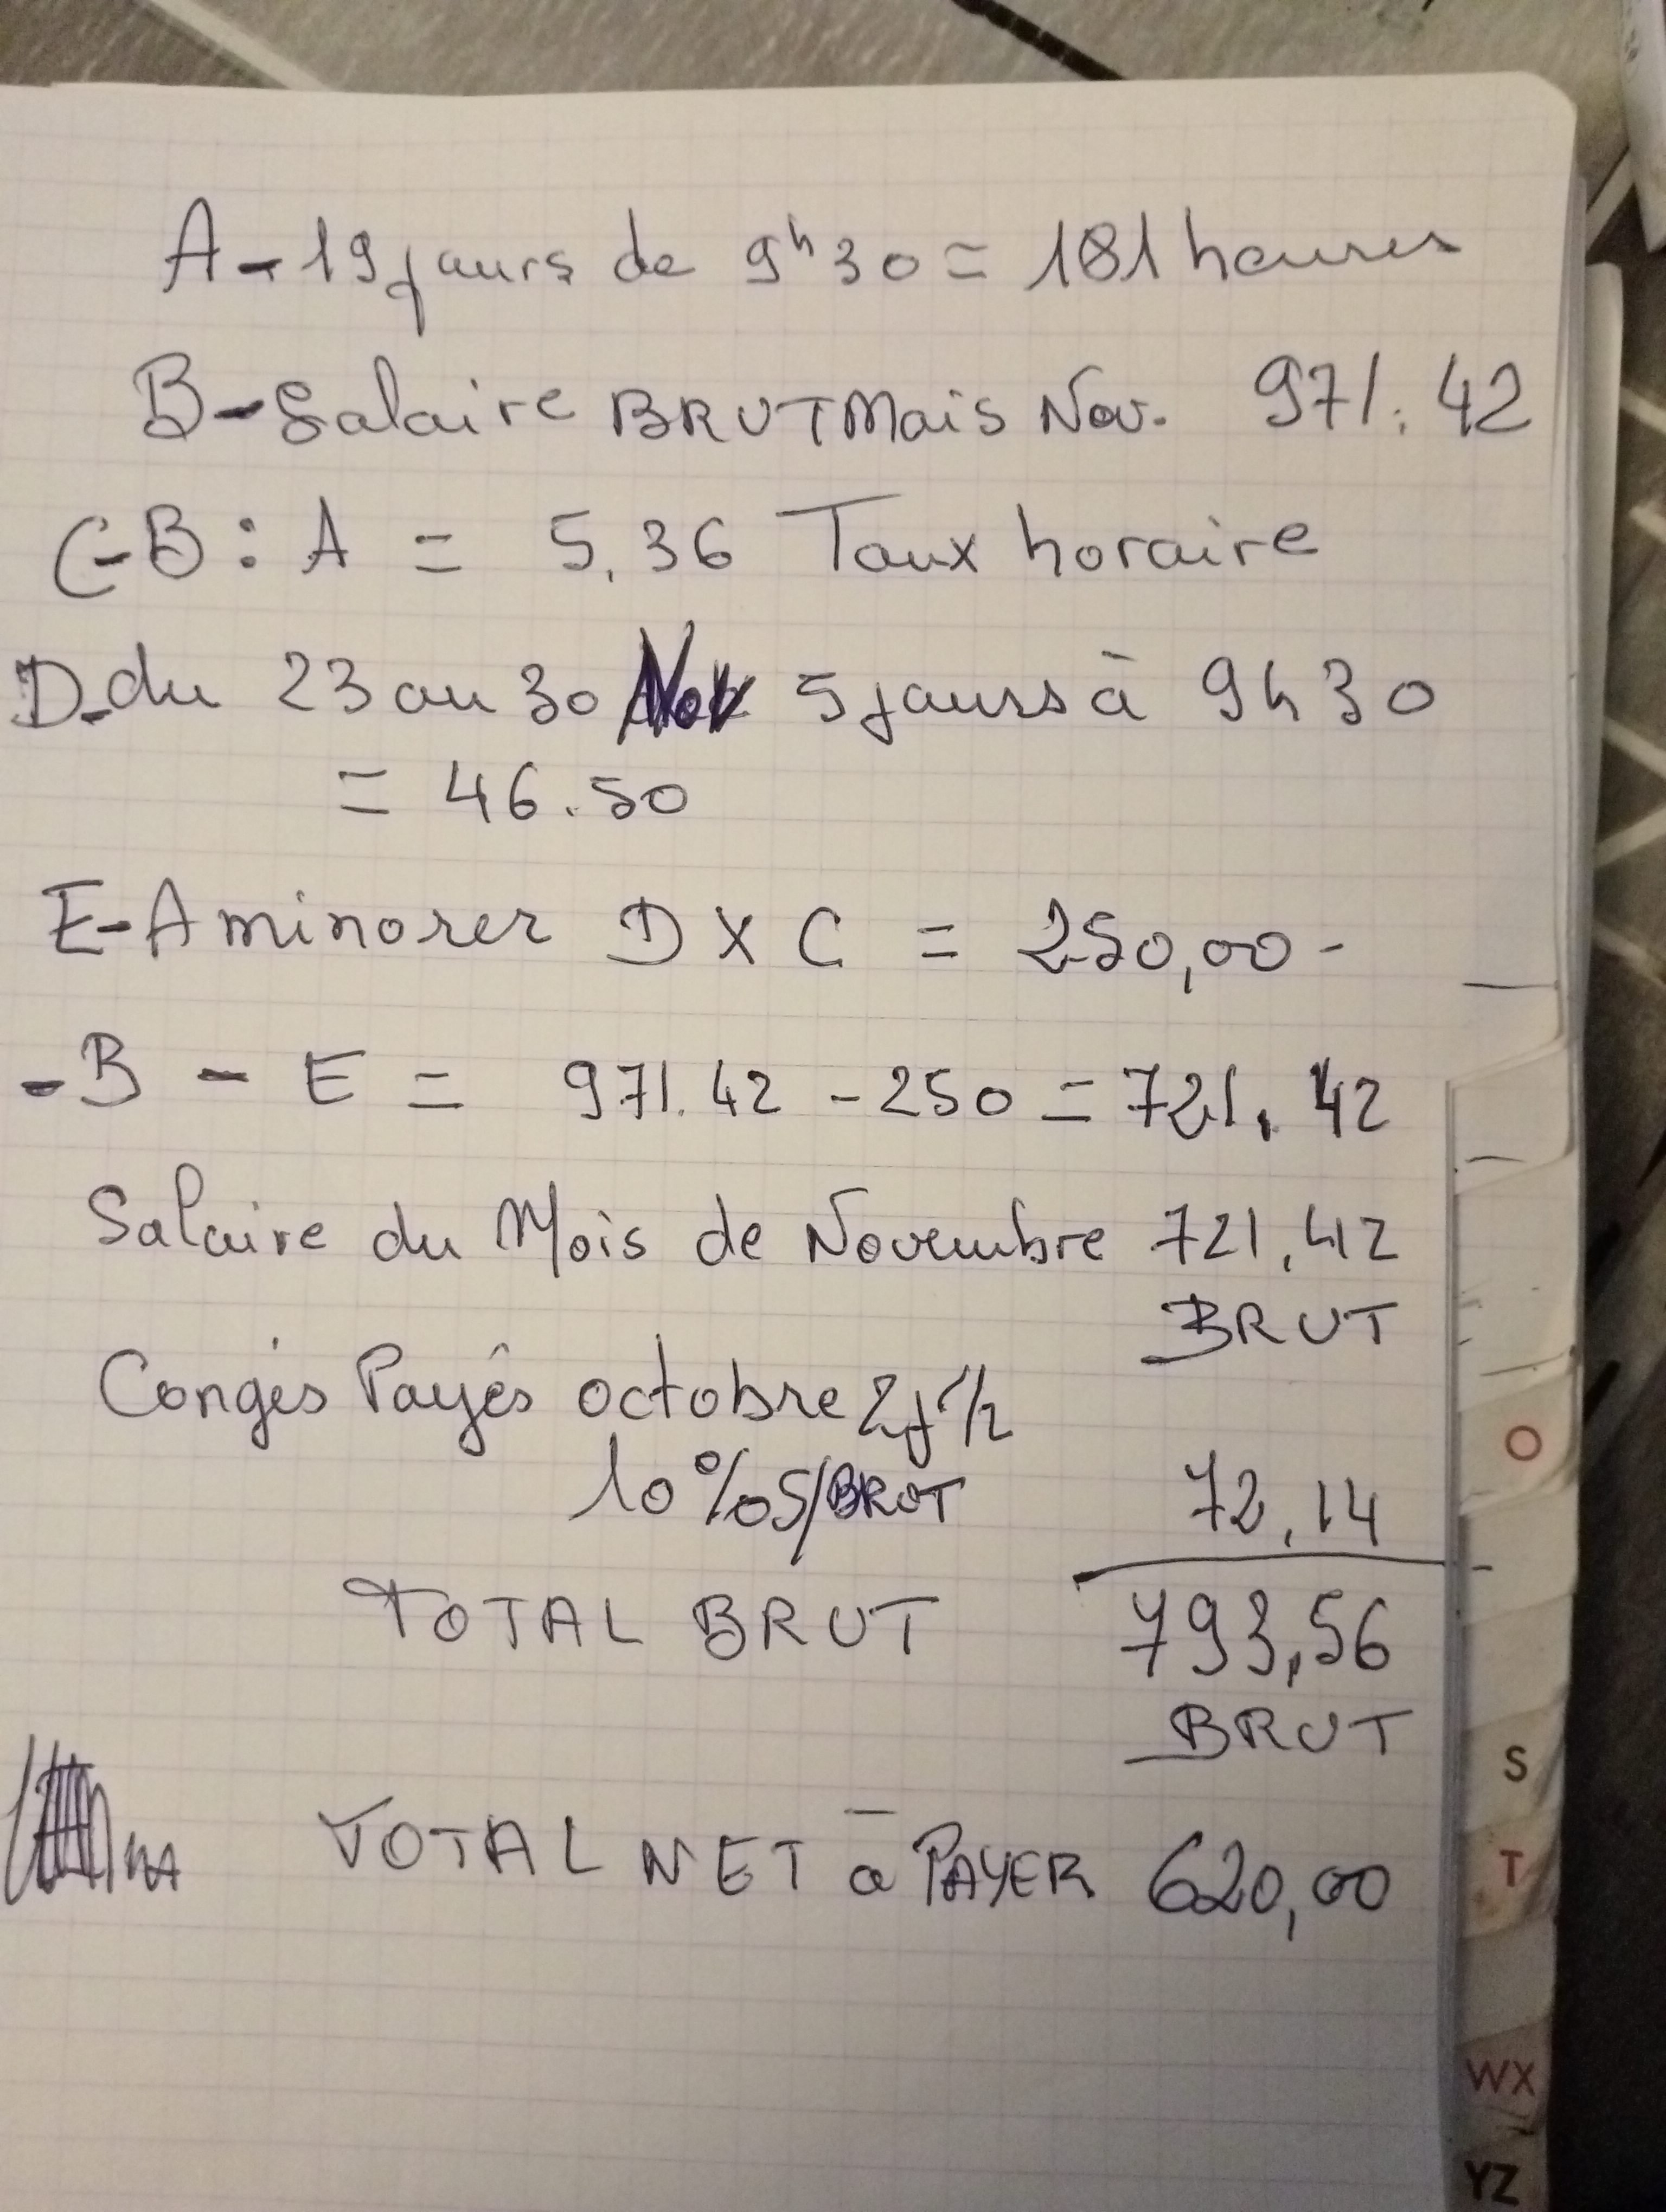 A - 19 jours de 9h30 = 181 heures
B - Salaire BRUT Mois Nov. 971.42
C - B : A = 5,36 Taux horaire
D - du 23 au 30 Nov 5 jours à 9h30
= 46.50
E - A minorer D X C = 250,00 -
- B - E = 971.42 - 250 = 721,42
Salaire du Mois de Novembre 721,42
BRUT
Congés Payés octobre 2j 1/2
10% S/BRUT 72,14
TOTAL BRUT 793,56
BRUT
TOTAL NET à PAYER 620,00
O
S
T
WX
YZ